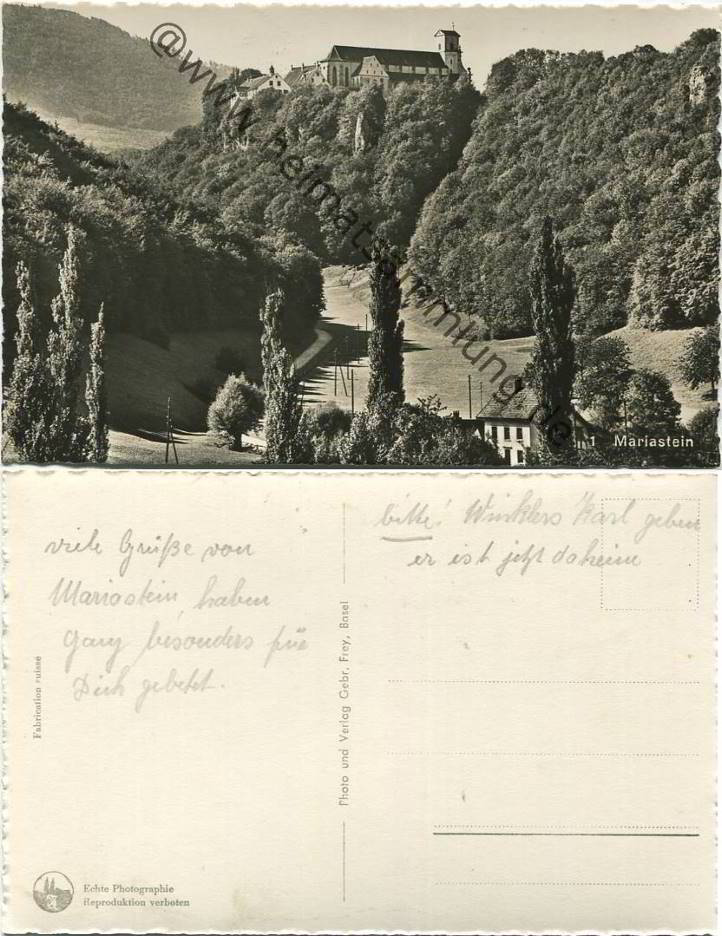 @www.heimatsammlung.de
1 Mariastein
viele Grüße von
Mariastein, haben
ganz besonders für
Dich gebetet.
Fabrication suisse
Photo und Verlag Gebr. Frey, Basel
bitte! Winklers Karl geben
er ist jetzt daheim
Echte Photographie
Reproduktion verboten